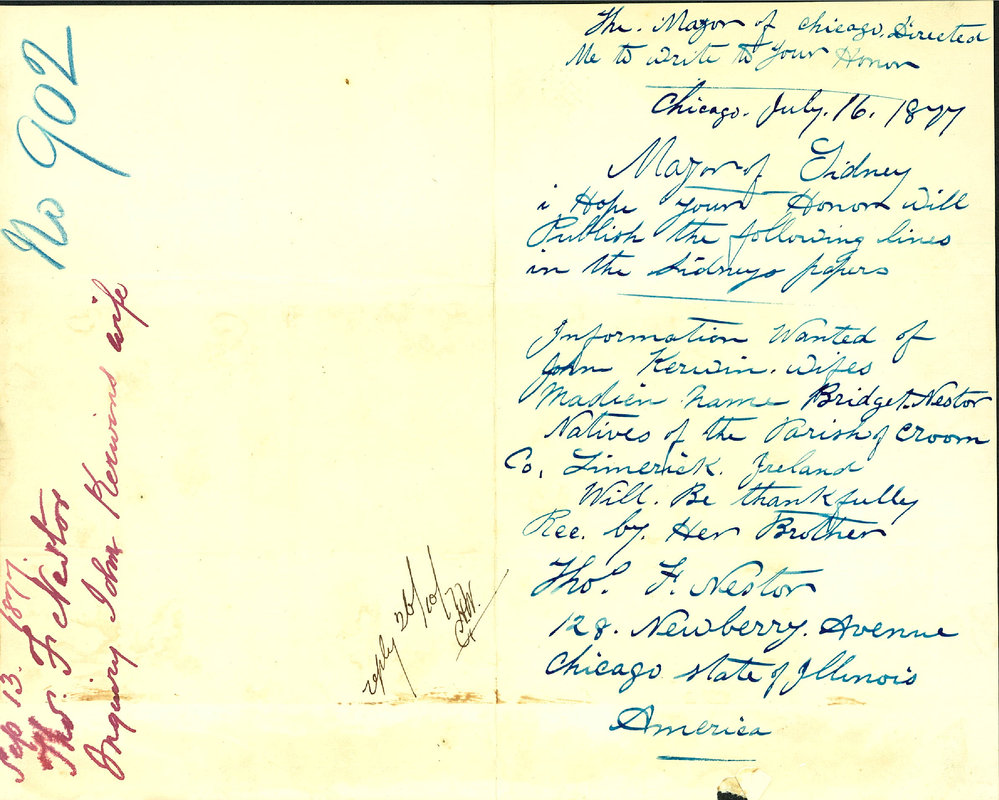 The. Mayor of Chicago. Directed
Me to write to Your Honor
Chicago. July. 16. 1877
Mayor of Sidney
i Hope your Honor will
Publish the following lines
in the Sidneys papers
Information Wanted of
John Kerwin. wifes
Madien Name Bridget. Nestor
Natives of the Parish of Croom
Co, Limerick. Ireland
Will. Be thankfully
Rec. by. Her Brother
Thos. F. Nestor
128. Newberry. Avenue
Chicago State of Illinois
America
No 902
Sep 13. 1877.
Thos. F. Nestor
Inquiry John Kerwins wife
reply 26/10/